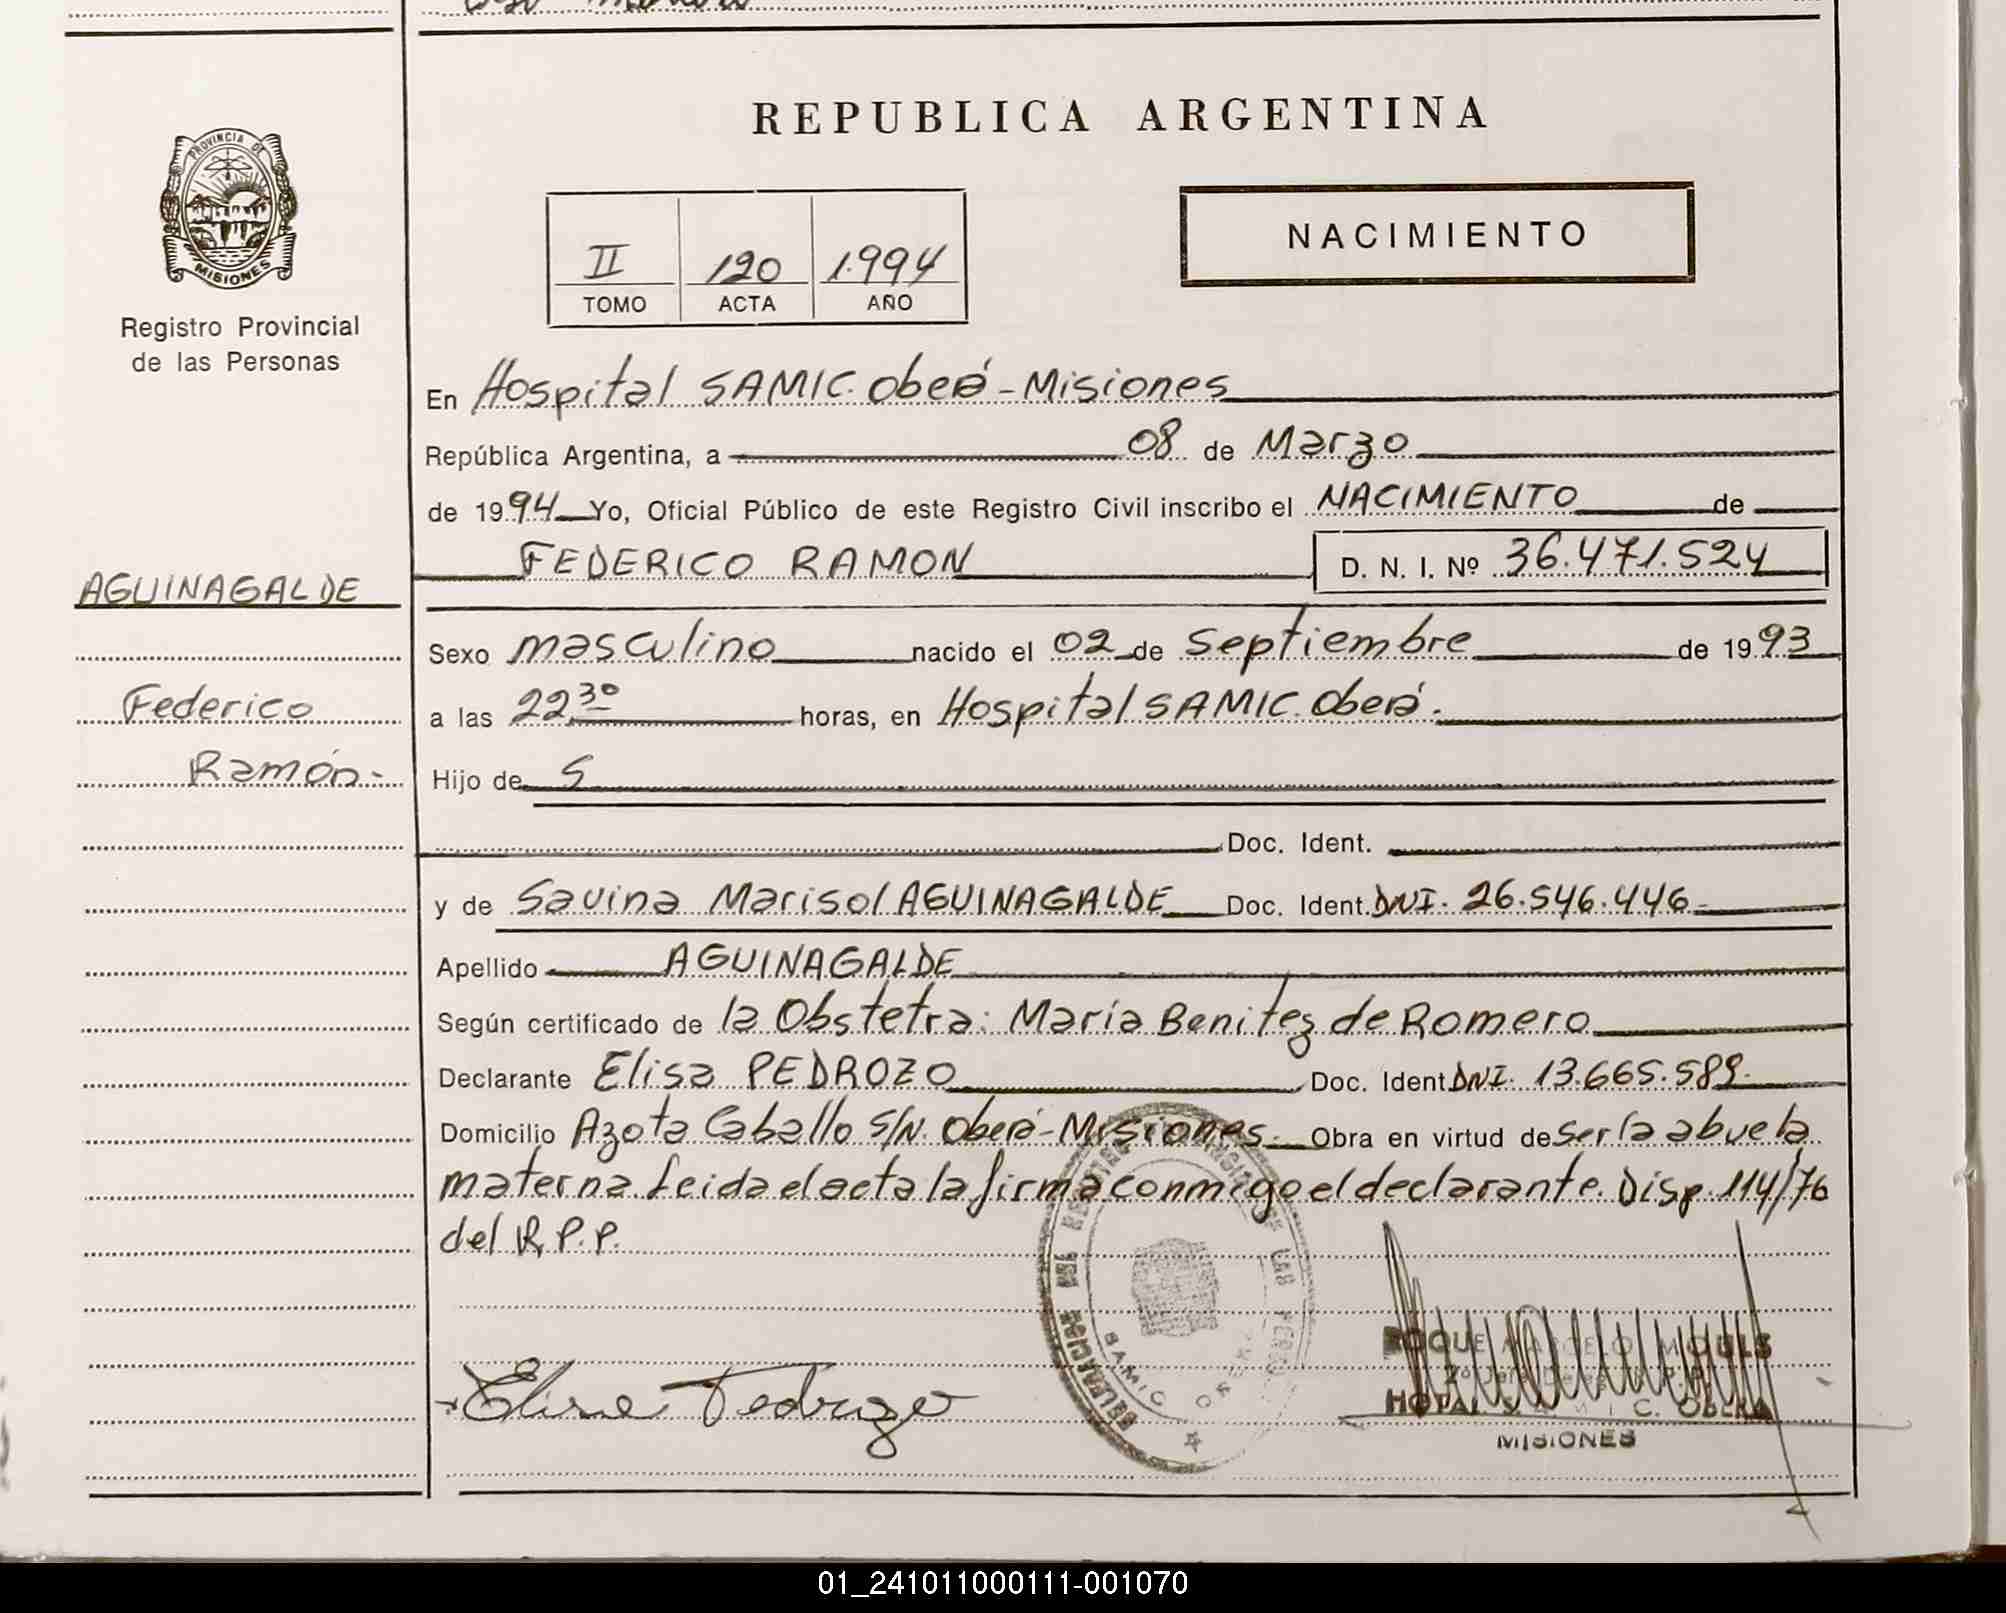 REPUBLICA ARGENTINA
PROVINCIA DE
MISIONES
Registro Provincial
de las Personas
NACIMIENTO
II 120 1.994
TOMO ACTA AÑO
En Hospital SAMIC. Oberá - Misiones
República Argentina, a 08 de Marzo
de 1994 Yo, Oficial Público de este Registro Civil inscribo el NACIMIENTO de
FEDERICO RAMON D. N. I. Nº 36.471.524
AGUINAGALDE
Federico
Ramón.-
Sexo masculino nacido el 02 de Septiembre de 1993
a las 22,30 horas, en Hospital SAMIC. Oberá.
Hijo de
Doc. Ident.
y de Savina Marisol AGUINAGALDE Doc. Ident. DNI. 26.546.446.-
Apellido AGUINAGALDE
Según certificado de la Obstetra: María Benitez de Romero
Declarante Elisa PEDROZO Doc. Ident. DNI. 13.665.589.
Domicilio Azota Caballo S/N. Oberá - Misiones. Obra en virtud de ser la abuela
materna. Leida el acta la firma conmigo el declarante. Disp. 114/76
del R.P.P.
Elisa Pedrozo
SAMIC
ROQUE
MISIONES
01_241011000111-001070